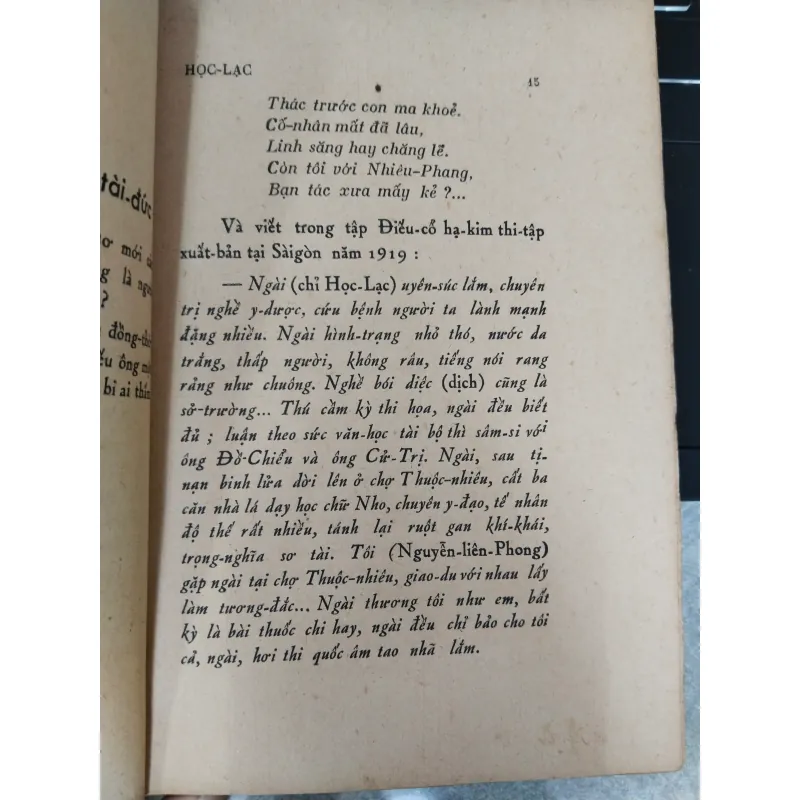 tài-đức
ơ mới
là
?
đồng-
ông
bi ai
HỌC-LẠC
15
Thác trước con ma khoẻ.
Cố-nhân mất đã lâu,
Linh săng hay chăng lẽ.
Còn tôi với Nhiêu-Phang,
Bạn tác xưa mấy kẻ ?...
Và viết trong tập Điếu-cổ hạ-kim thi-tập
xuất-bản tại Sàigòn năm 1919 :
— Ngài (chỉ Học-Lạc) uyên-súc lắm, chuyên
trị nghề y-dược, cứu bệnh người ta lành mạnh
đặng nhiều. Ngài hình-trạng nhỏ thó, nước da
trắng, thấp người, không râu, tiếng nói rang
rảng như chuông. Nghề bói diệc (dịch) cũng là
sở-trường... Thú cầm kỳ thi họa, ngài đều biết
đủ ; luận theo sức văn-học tài bộ thì sâm-si với
ông Đồ-Chiểu và ông Cử-Trị. Ngài, sau tị-
nạn binh lửa dời lên ở chợ Thuộc-nhiêu, cất ba
căn nhà lá dạy học chữ Nho, chuyên y-đạo, tế nhân
độ thế rất nhiều, tánh lại ruột gan khí-khái,
trọng-nghĩa sơ tài. Tôi (Nguyễn-liên-Phong)
gặp ngài tại chợ Thuộc-nhiêu, giao-du với nhau lấy
làm tương-đắc... Ngài thương tôi như em, bất
kỳ là bài thuốc chi hay, ngài đều chỉ bảo cho tôi
cả, ngài, hơi thi quốc âm tao nhã lắm.